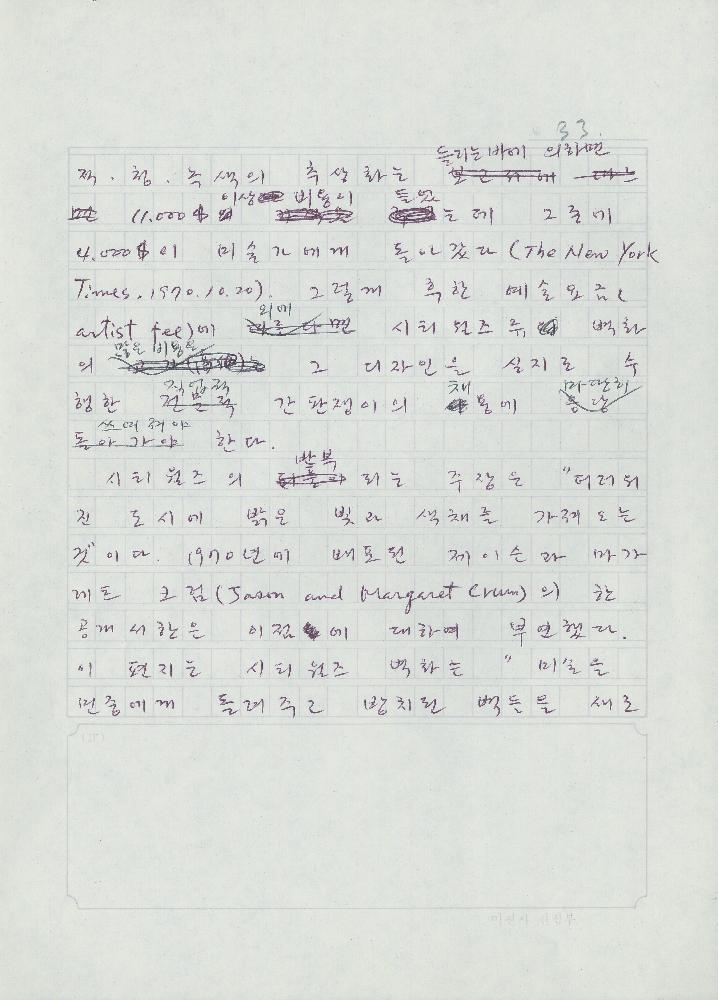 33.
들리는 바에 의하면
적·청·녹색의 추상화는
이상 비용이 들었
11.000$ 는데 그 중에
4.000$이 미술가에게 돌아갔다 (The New York
Times, 1970.10.20). 그렇게 후한 예술요금(
외에
artist fee)에 따르다면 시티 월즈 류, 벽화
많은 비용은
의 그 디자인을 실지로 수
직업적 채 마땅히
행한 전문적 간판쟁이의 용에 응당
쓰여져야
돌아가야 한다.
반복
시티 월즈의 되는 주장은 "더러워
진 도시에 밝은 빛과 색채를 가져오는
것"이다. 1970년에 배포된 제이슨과 마가
레트 크럼(Jason and Margaret Crum)의 한
공개서한은 이점에 대하여 부연했다.
이 편지는 시티 월즈 벽화는 "미술을
민중에게 돌려주고 방치된 벽들을 새로